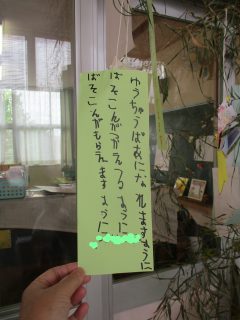 ゆうちゅうばあになれますように
ぱそこんがつかえるように
ぱそこんがもらえますように